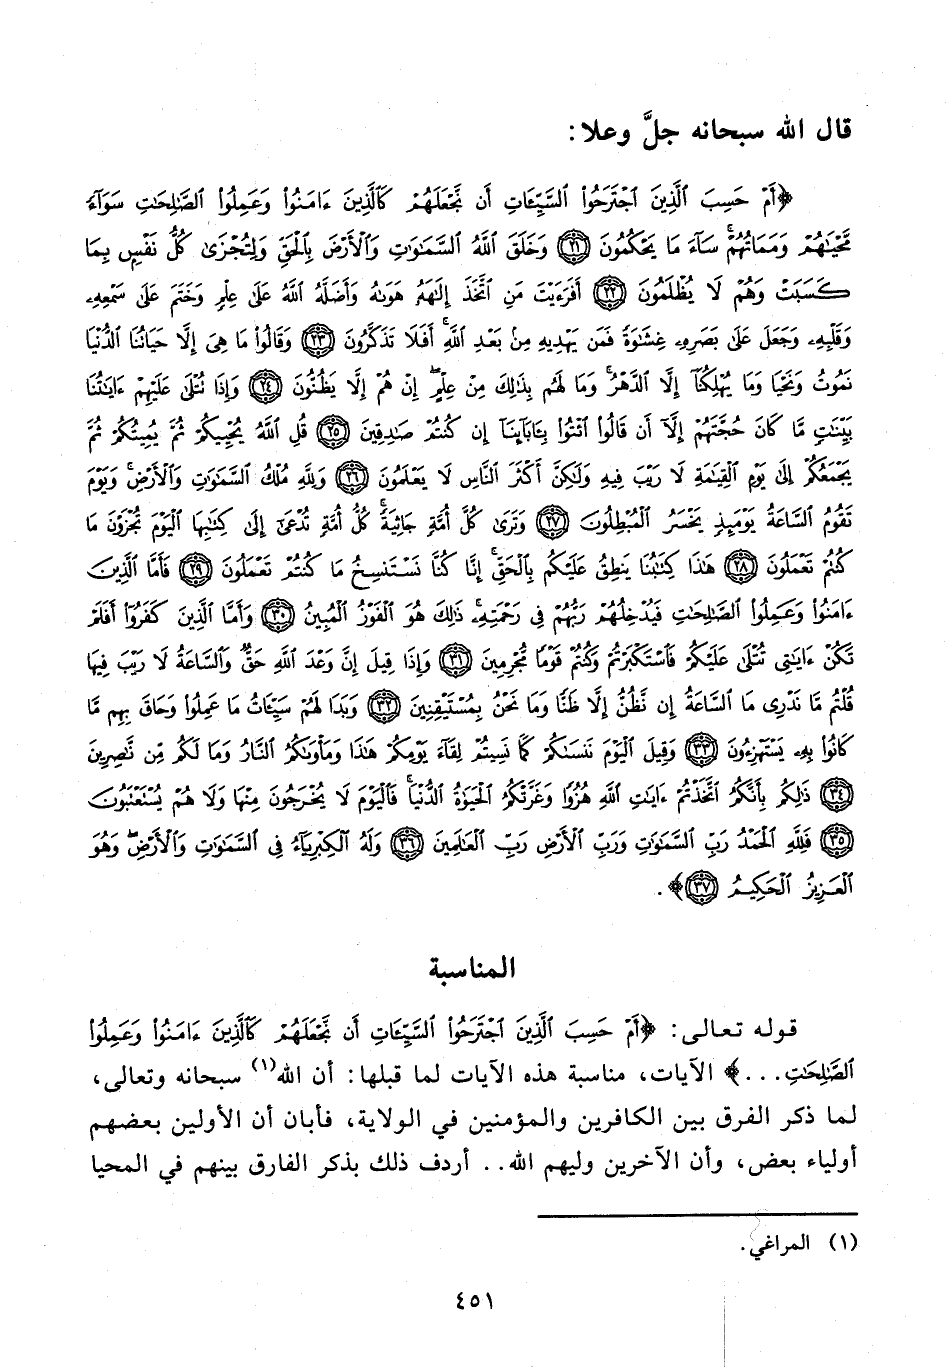 قال الله سبحانه جلَّ وعلا:
﴿أَمْ حَسِبَ ٱلَّذِينَ ٱجْتَرَحُوا۟ ٱلسَّيِّـَٔاتِ أَن نَّجْعَلَهُمْ كَٱلَّذِينَ ءَامَنُوا۟ وَعَمِلُوا۟ ٱلصَّـٰلِحَـٰتِ سَوَآءً
مَّحْيَاهُمْ وَمَمَاتُهُمْ ۚ سَآءَ مَا يَحْكُمُونَ ﴿٢١﴾ وَخَلَقَ ٱللَّهُ ٱلسَّمَـٰوَٰتِ وَٱلْأَرْضَ بِٱلْحَقِّ وَلِتُجْزَىٰ كُلُّ نَفْسٍۭ بِمَا
كَسَبَتْ وَهُمْ لَا يُظْلَمُونَ ﴿٢٢﴾ أَفَرَءَيْتَ مَنِ ٱتَّخَذَ إِلَـٰهَهُۥ هَوَىٰهُ وَأَضَلَّهُ ٱللَّهُ عَلَىٰ عِلْمٍ وَخَتَمَ عَلَىٰ سَمْعِهِۦ
وَقَلْبِهِۦ وَجَعَلَ عَلَىٰ بَصَرِهِۦ غِشَـٰوَةً فَمَن يَهْدِيهِ مِنۢ بَعْدِ ٱللَّهِ ۚ أَفَلَا تَذَكَّرُونَ ﴿٢٣﴾ وَقَالُوا۟ مَا هِىَ إِلَّا حَيَاتُنَا ٱلدُّنْيَا
نَمُوتُ وَنَحْيَا وَمَا يُهْلِكُنَآ إِلَّا ٱلدَّهْرُ ۚ وَمَا لَهُم بِذَٰلِكَ مِنْ عِلْمٍ ۖ إِنْ هُمْ إِلَّا يَظُنُّونَ ﴿٢٤﴾ وَإِذَا تُتْلَىٰ عَلَيْهِمْ ءَايَـٰتُنَا
بَيِّنَـٰتٍ مَّا كَانَ حُجَّتَهُمْ إِلَّآ أَن قَالُوا۟ ٱئْتُوا۟ بِـَٔابَآئِنَآ إِن كُنتُمْ صَـٰدِقِينَ ﴿٢٥﴾ قُلِ ٱللَّهُ يُحْيِيكُمْ ثُمَّ يُمِيتُكُمْ ثُمَّ
يَجْمَعُكُمْ إِلَىٰ يَوْمِ ٱلْقِيَـٰمَةِ لَا رَيْبَ فِيهِ وَلَـٰكِنَّ أَكْثَرَ ٱلنَّاسِ لَا يَعْلَمُونَ ﴿٢٦﴾ وَلِلَّهِ مُلْكُ ٱلسَّمَـٰوَٰتِ وَٱلْأَرْضِ ۚ وَيَوْمَ
تَقُومُ ٱلسَّاعَةُ يَوْمَئِذٍ يَخْسَرُ ٱلْمُبْطِلُونَ ﴿٢٧﴾ وَتَرَىٰ كُلَّ أُمَّةٍ جَاثِيَةً ۚ كُلُّ أُمَّةٍ تُدْعَىٰٓ إِلَىٰ كِتَـٰبِهَا ٱلْيَوْمَ تُجْزَوْنَ مَا
كُنتُمْ تَعْمَلُونَ ﴿٢٨﴾ هَـٰذَا كِتَـٰبُنَا يَنطِقُ عَلَيْكُم بِٱلْحَقِّ ۚ إِنَّا كُنَّا نَسْتَنسِخُ مَا كُنتُمْ تَعْمَلُونَ ﴿٢٩﴾ فَأَمَّا ٱلَّذِينَ
ءَامَنُوا۟ وَعَمِلُوا۟ ٱلصَّـٰلِحَـٰتِ فَيُدْخِلُهُمْ رَبُّهُمْ فِى رَحْمَتِهِۦ ۚ ذَٰلِكَ هُوَ ٱلْفَوْزُ ٱلْمُبِينُ ﴿٣٠﴾ وَأَمَّا ٱلَّذِينَ كَفَرُوٓا۟ أَفَلَمْ
تَكُنْ ءَايَـٰتِى تُتْلَىٰ عَلَيْكُمْ فَٱسْتَكْبَرْتُمْ وَكُنتُمْ قَوْمًا مُّجْرِمِينَ ﴿٣١﴾ وَإِذَا قِيلَ إِنَّ وَعْدَ ٱللَّهِ حَقٌّ وَٱلسَّاعَةُ لَا رَيْبَ فِيهَا
قُلْتُم مَّا نَدْرِى مَا ٱلسَّاعَةُ إِن نَّظُنُّ إِلَّا ظَنًّا وَمَا نَحْنُ بِمُسْتَيْقِنِينَ ﴿٣٢﴾ وَبَدَا لَهُمْ سَيِّـَٔاتُ مَا عَمِلُوا۟ وَحَاقَ بِهِم مَّا
كَانُوا۟ بِهِۦ يَسْتَهْزِءُونَ ﴿٣٣﴾ وَقِيلَ ٱلْيَوْمَ نَنسَىٰكُمْ كَمَا نَسِيتُمْ لِقَآءَ يَوْمِكُمْ هَـٰذَا وَمَأْوَىٰكُمُ ٱلنَّارُ وَمَا لَكُم مِّن نَّـٰصِرِينَ
﴿٣٤﴾ ذَٰلِكُم بِأَنَّكُمُ ٱتَّخَذْتُمْ ءَايَـٰتِ ٱللَّهِ هُزُوًا وَغَرَّتْكُمُ ٱلْحَيَوٰةُ ٱلدُّنْيَا ۚ فَٱلْيَوْمَ لَا يُخْرَجُونَ مِنْهَا وَلَا هُمْ يُسْتَعْتَبُونَ
﴿٣٥﴾ فَلِلَّهِ ٱلْحَمْدُ رَبِّ ٱلسَّمَـٰوَٰتِ وَرَبِّ ٱلْأَرْضِ رَبِّ ٱلْعَـٰلَمِينَ ﴿٣٦﴾ وَلَهُ ٱلْكِبْرِيَآءُ فِى ٱلسَّمَـٰوَٰتِ وَٱلْأَرْضِ ۖ وَهُوَ
ٱلْعَزِيزُ ٱلْحَكِيمُ ﴿٣٧﴾﴾.
المناسبة
قوله تعالى: ﴿أَمْ حَسِبَ ٱلَّذِينَ ٱجْتَرَحُوا۟ ٱلسَّيِّـَٔاتِ أَن نَّجْعَلَهُمْ كَٱلَّذِينَ ءَامَنُوا۟ وَعَمِلُوا۟
ٱلصَّـٰلِحَـٰتِ...﴾ الآيات، مناسبة هذه الآيات لما قبلها: أن الله(١) سبحانه وتعالى،
لما ذكر الفرق بين الكافرين والمؤمنين في الولاية، فأبان أن الأولين بعضهم
أولياء بعض، وأن الآخرين وليهم الله.. أردف ذلك بذكر الفارق بينهم في المحيا
(١) المراغي.
٤٥١